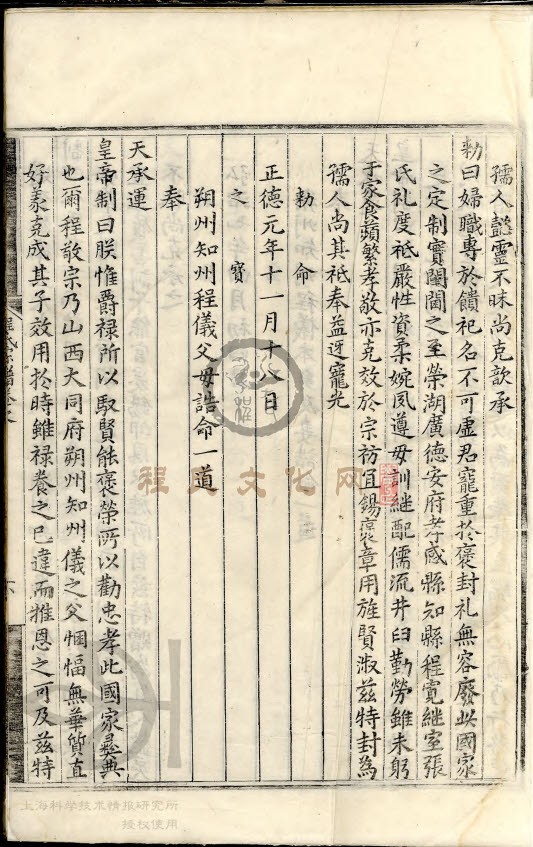 孺人懿靈不昧尚克歆承
勑曰婦職專於饋祀名不可虛君寵重於褒封礼無容廢此國家
之定制實閨閫之至榮湖廣德安府孝感縣知縣程寬継室張
氏礼度祗嚴性資柔婉夙遵毋訓継配儒流井臼勤勞雖未躬
于家食蘋蘩孝敬亦克效於宗祊宜錫褒章用旌賢淑兹特封為
孺人尚其祗奉益迓寵光
勅命
正德元年十一月十八日
之寶
朔州知州程儀父毋誥命一道
奉
天承運
皇帝制曰朕惟爵禄所以馭賢能褒榮所以勸忠孝此國家彞典
也爾程敬宗乃山西大同府朔州知州儀之父悃愊無華質直
好義克成其子效用於時雖禄養之已違而推恩之可及兹特
程氏文化网
上海科学技术情报研究所
授权使用